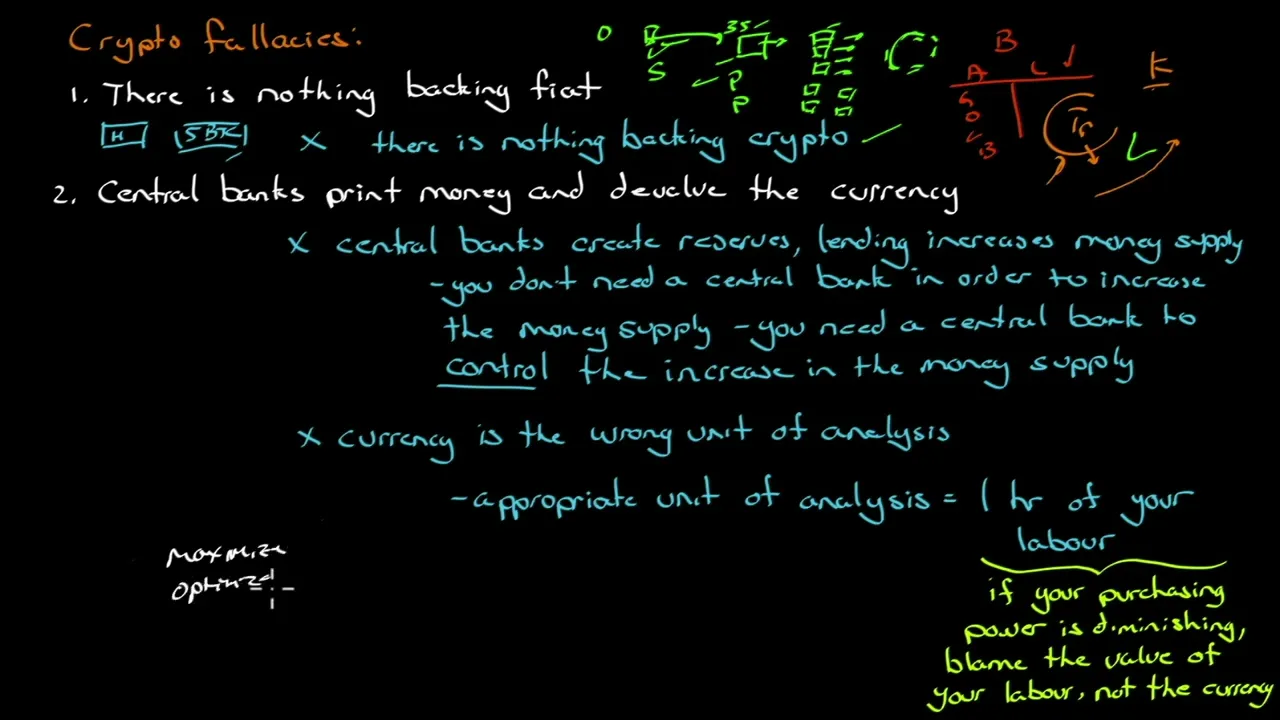 Crypto fallacies:
1. There is nothing backing fiat
H 5 BTC x there is nothing backing crypto
2. Central banks print money and devalue the currency
x central banks create reserves, lending increases money supply
- you don't need a central bank in order to increase
the money supply - you need a central bank to
control the increase in the money supply
x currency is the wrong unit of analysis
- appropriate unit of analysis = 1 hr of your
labour
if your purchasing
power is diminishing,
blame the value of
your labour, not the currency
maximize
optimize
0
35
S
P
P
B
A L
G
O
B
Tr
L
K